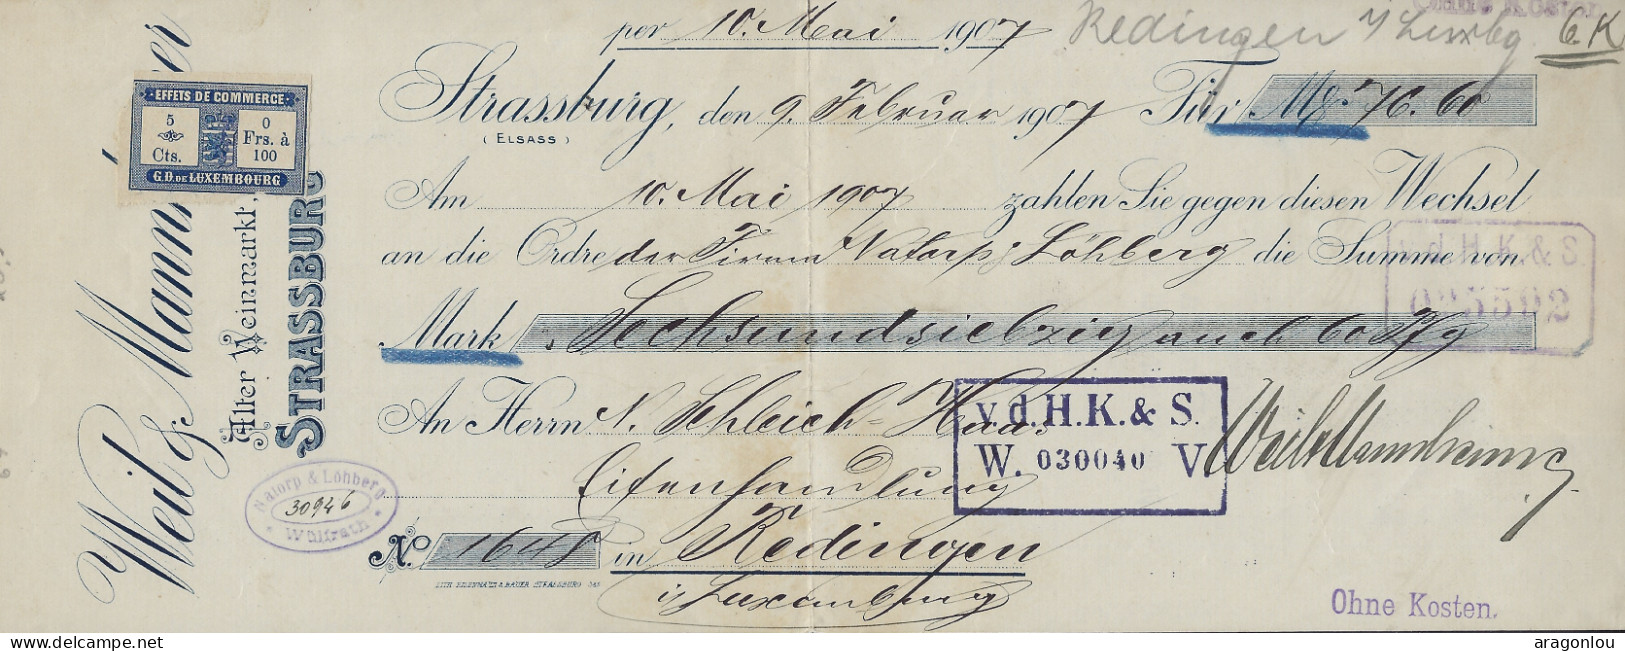 per 10. Mai 1907
Redingen i/Luxbg
G.K
Ohne Kosten
Strassburg, den 9. Februar 1907 Für M 76.60
(ELSASS)
Am 10. Mai 1907 zahlen Sie gegen diesen Wechsel
an die Ordre der Firma Natorp & Löhberg die Summe von
Mark Sechsundsiebzig auch 60 Pfg
An Herrn N. Schleich-Haas
Eisenhandlung
No 1648 in Redingen
i/Luxemburg
Weil & Mannheimer
v.d.H.K.&S.
W. 030040 V
v.d.H.K.&S.
Ohne Kosten.
EFFETS DE COMMERCE
5
Cts.
0
Frs. à
100
G.D. DE LUXEMBOURG
Weil & Mann er
Alter Weinmarkt,
STRASSBURG
Natorp & Löhberg
30946
Wülfrath
delcampe.net
aragonlou